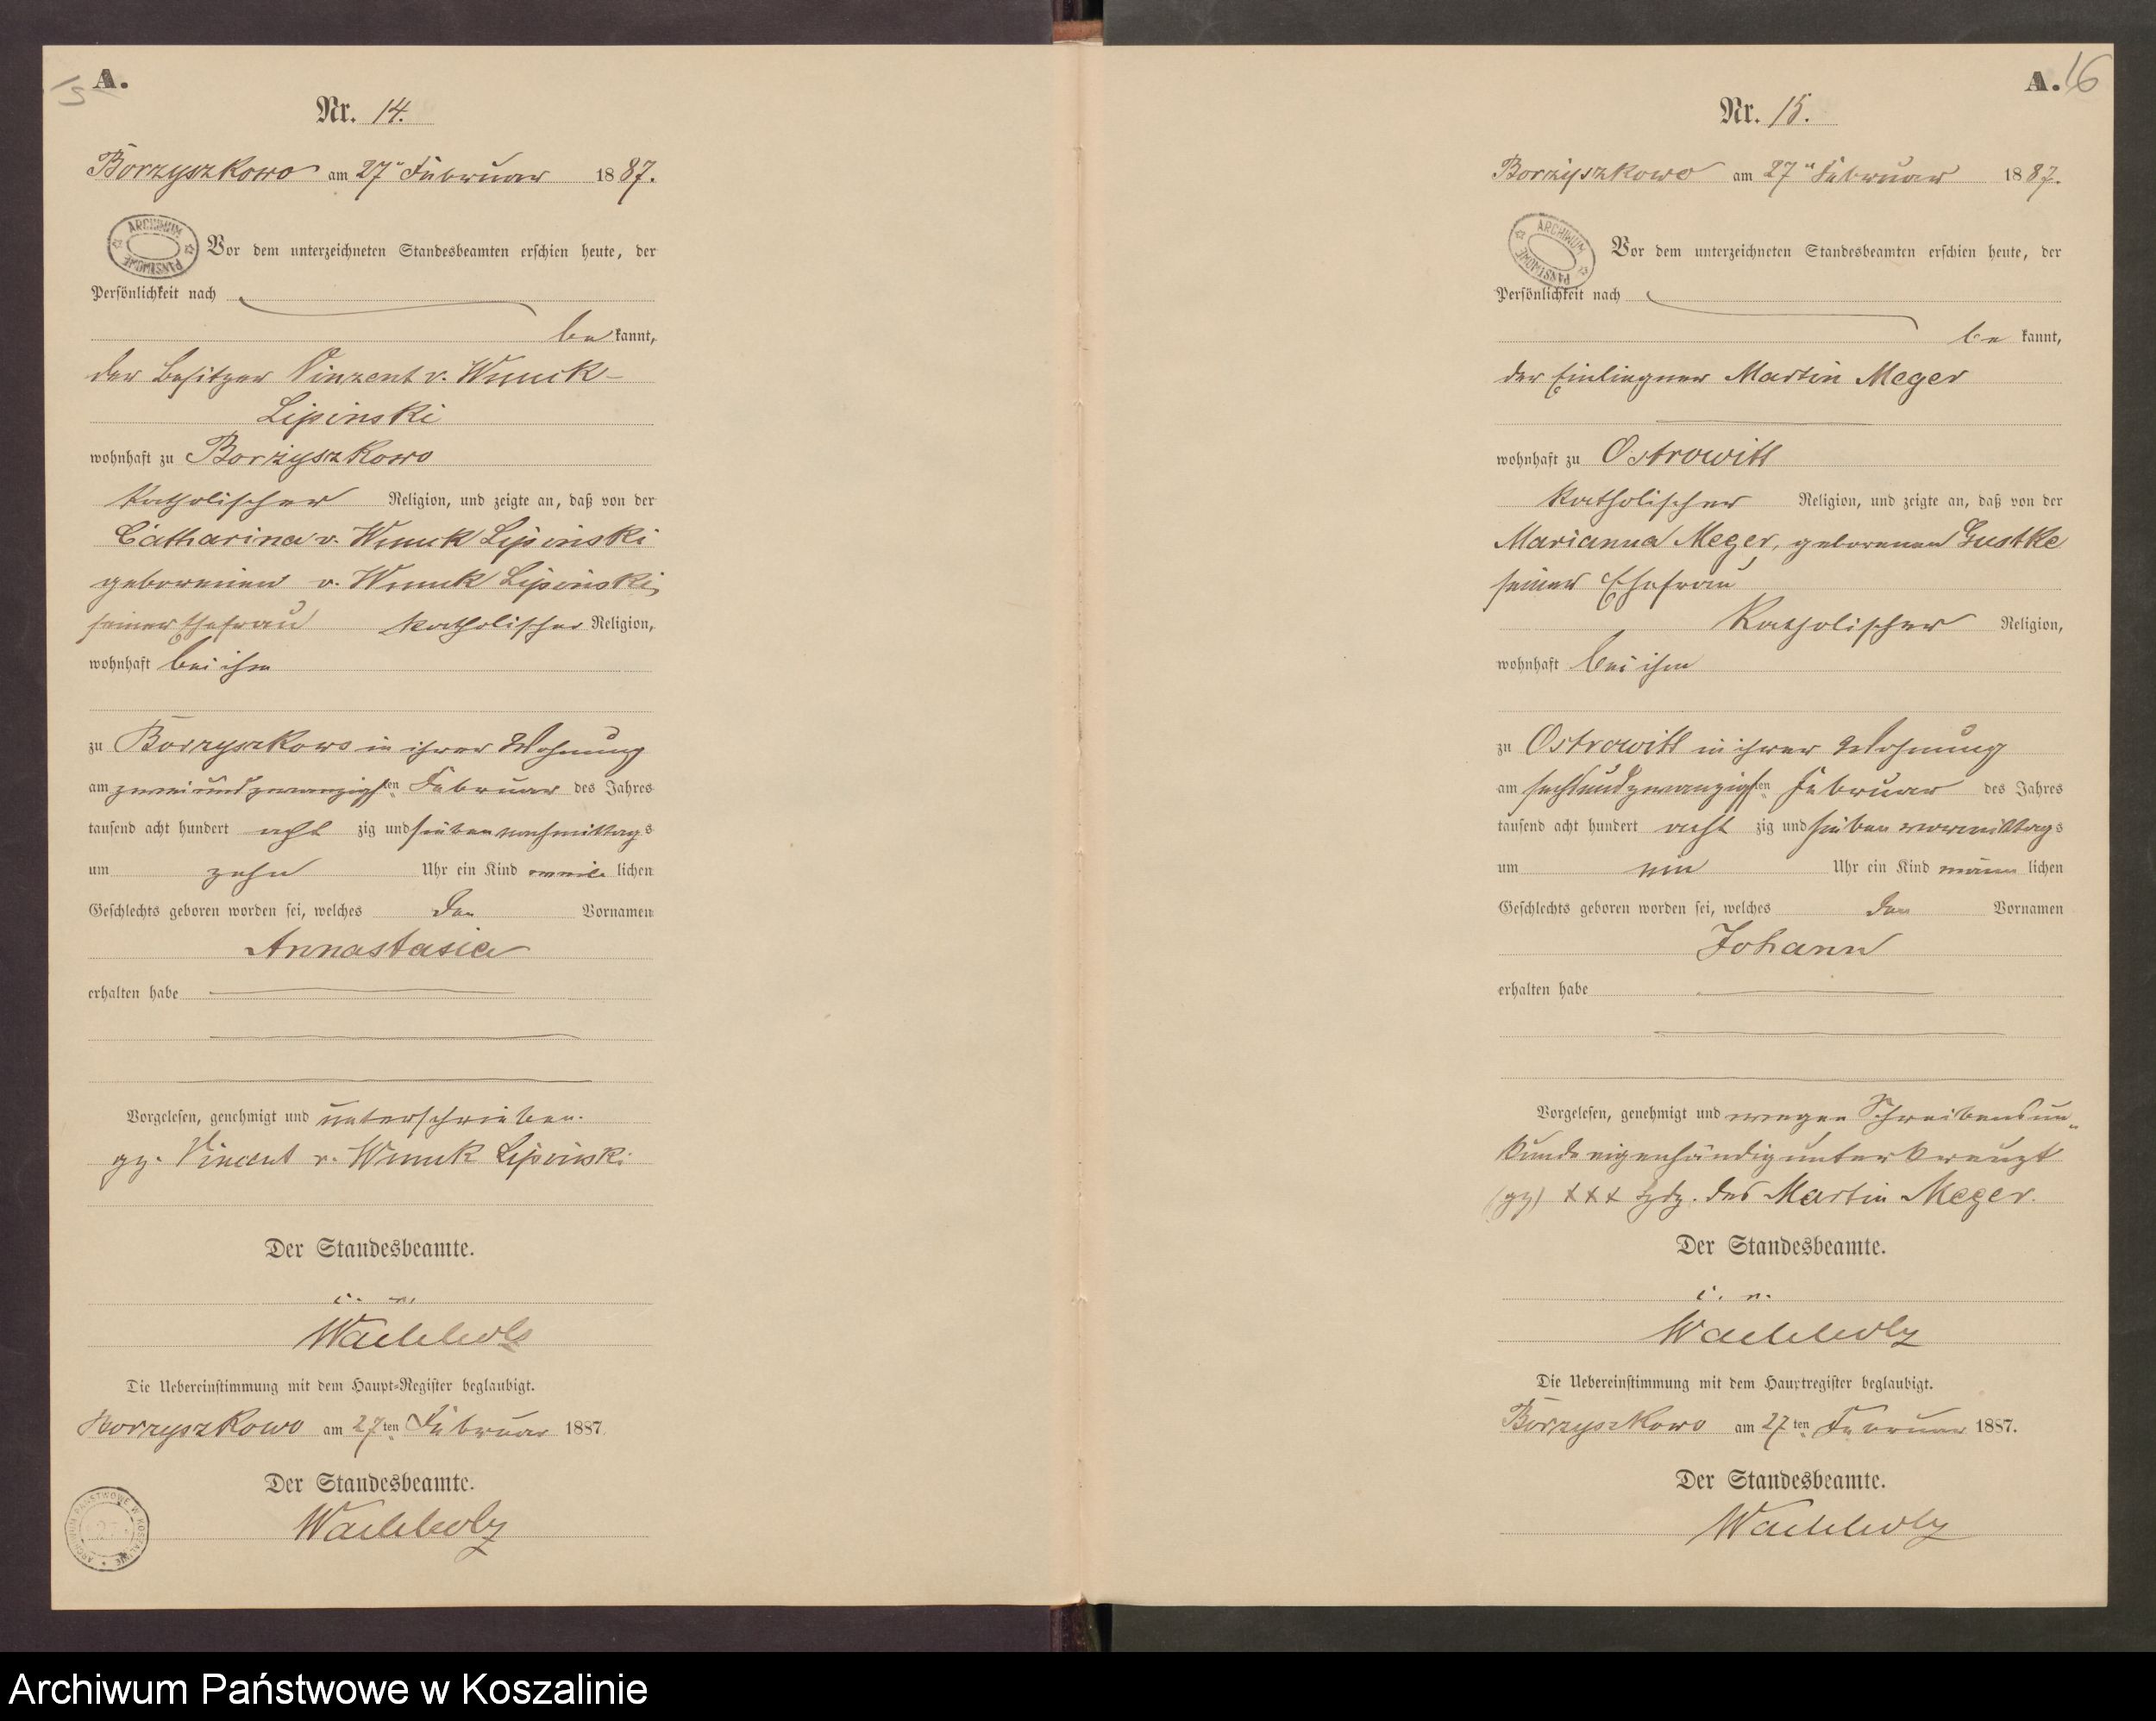 15
A.
Nr. 14.
Borzyszkowo am 27ten Februar 1887.
ARCHIWUM PAŃSTWOWE
Vor dem unterzeichneten Standesbeamten erschien heute, der
Persönlichkeit nach
be kannt,
der Besitzer Vinzent v. Wnuck-
Lipinski
wohnhaft zu Borzyszkowo
katholischer Religion, und zeigte an, daß von der
Catharina v. Wnuck Lipinski
geborenen v. Wnuck Lipinski,
seiner Ehefrau katholischer Religion,
wohnhaft bei ihm
zu Borzyszkowo in ihrer Wohnung
am zweiundzwanzigsten Februar des Jahres
tausend acht hundert acht zig und sieben nachmittags
um zehn Uhr ein Kind weib lichen
Geschlechts geboren worden sei, welches den Vornamen
Annastasia
erhalten habe
Vorgelesen, genehmigt und unterschrieben.
gz. Vincent v. Wnuck Lipinski
Der Standesbeamte.
Wachholz
Die Uebereinstimmung mit dem Haupt-Register beglaubigt.
Borzyszkowo am 27ten Februar 1887.
Der Standesbeamte.
Wachholz
ARCHIWUM PAŃSTWOWE W KOSZALINIE
16
A.
Nr. 15.
Borzyszkowo am 27ten Februar 1887.
ARCHIWUM PAŃSTWOWE
Vor dem unterzeichneten Standesbeamten erschien heute, der
Persönlichkeit nach
be kannt,
der Einlieger Martin Meger
wohnhaft zu Ostrowitt
katholischer Religion, und zeigte an, daß von der
Marianna Meger, geborenen Gustke
seiner Ehefrau
katholischer Religion,
wohnhaft bei ihm
zu Ostrowitt in ihrer Wohnung
am sechsundzwanzigsten Februar des Jahres
tausend acht hundert acht zig und sieben vormittags
um ein Uhr ein Kind männ lichen
Geschlechts geboren worden sei, welches den Vornamen
Johann
erhalten habe
Vorgelesen, genehmigt und wegen Schreibensun-
kunde eigenhändig unterkreuzt
(gz) xxx Hdz. des Martin Meger.
Der Standesbeamte.
Wachholz
Die Uebereinstimmung mit dem Hauptregister beglaubigt.
Borzyszkowo am 27ten Februar 1887.
Der Standesbeamte.
Wachholz
Archiwum Państwowe w Koszalinie